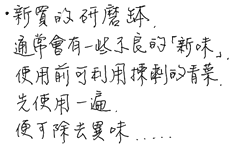 ・新買的研磨缽,
通常會有一些不良的「新味」,
使用前可利用揀剩的青菜,
先使用一遍,
便可除去異味.....